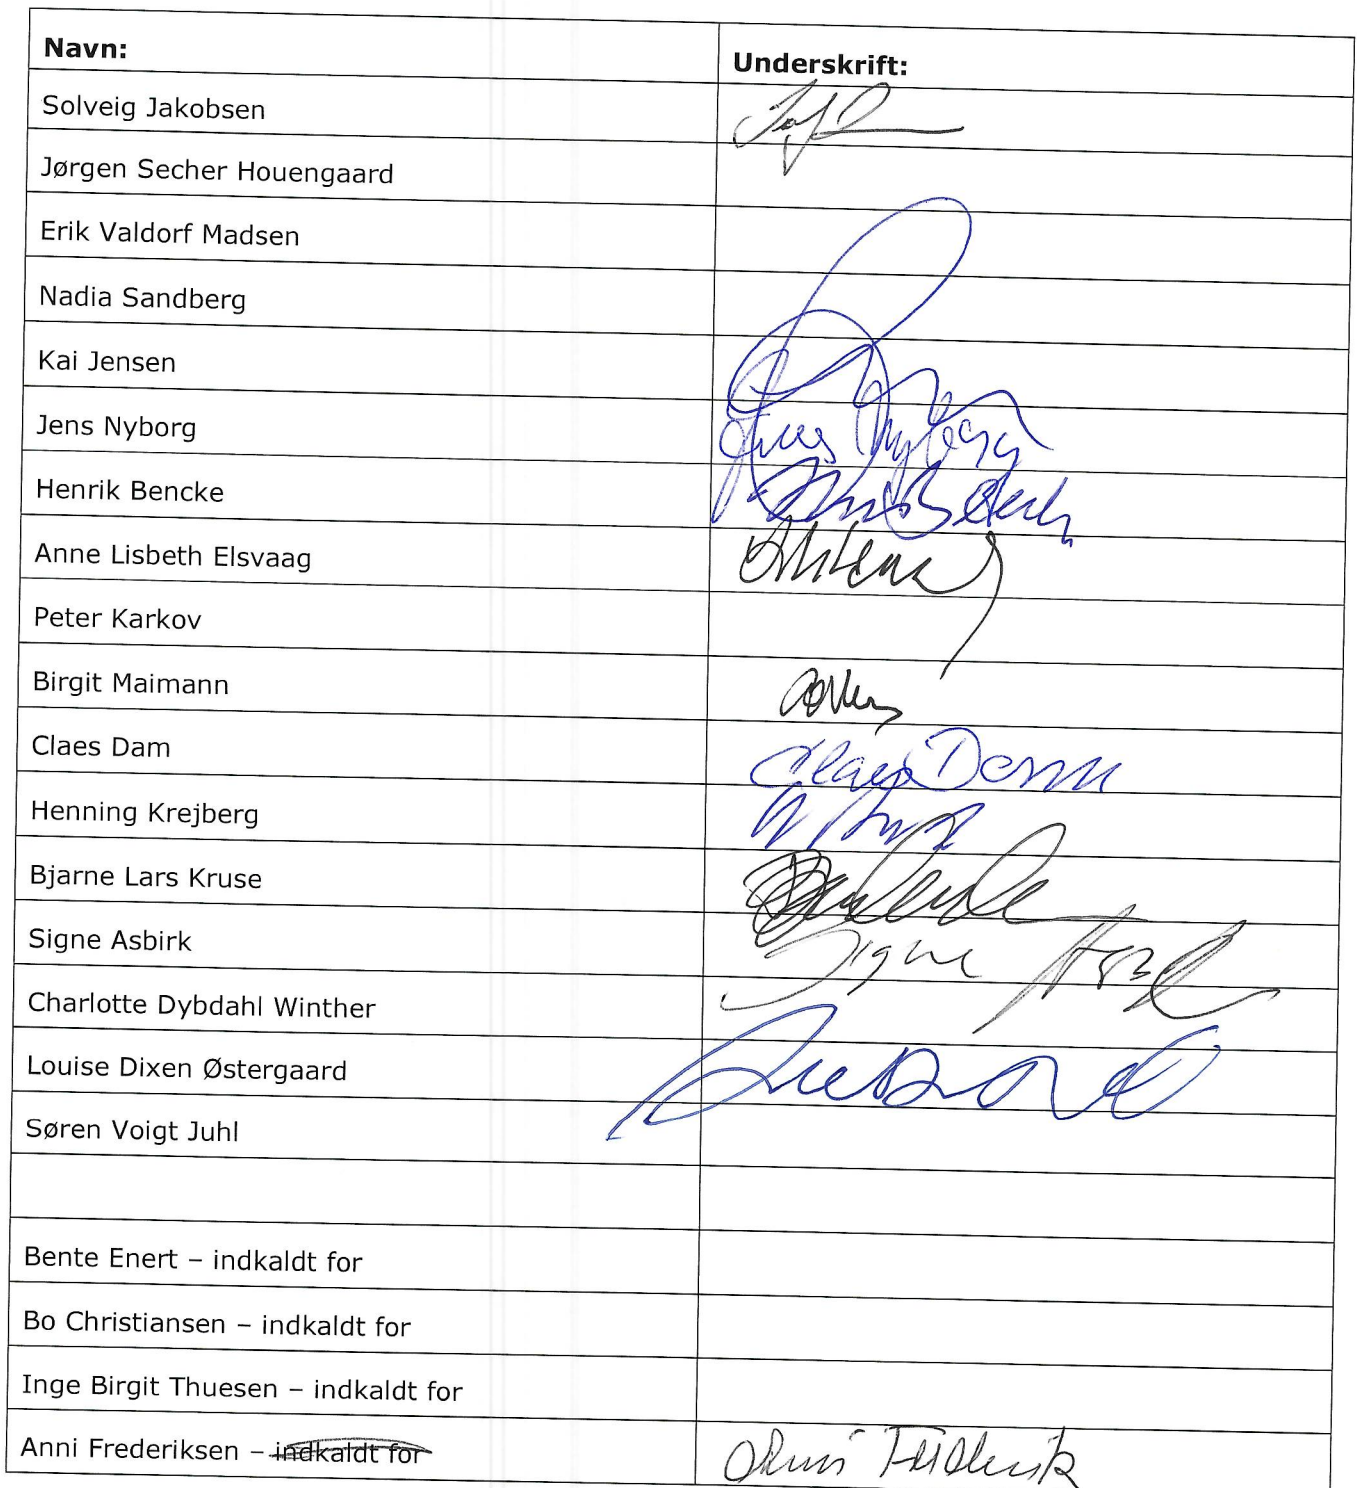 Navn: Underskrift:
Solveig Jakobsen
Jørgen Secher Houengaard
Erik Valdorf Madsen
Nadia Sandberg
Kai Jensen
Jens Nyborg Jens Nyborg
Henrik Bencke
Anne Lisbeth Elsvaag
Peter Karkov
Birgit Maimann
Claes Dam Claes Dam
Henning Krejberg
Bjarne Lars Kruse
Signe Asbirk Signe
Charlotte Dybdahl Winther
Louise Dixen Østergaard
Søren Voigt Juhl
Bente Enert – indkaldt for
Bo Christiansen – indkaldt for
Inge Birgit Thuesen – indkaldt for
Anni Frederiksen – indkaldt for